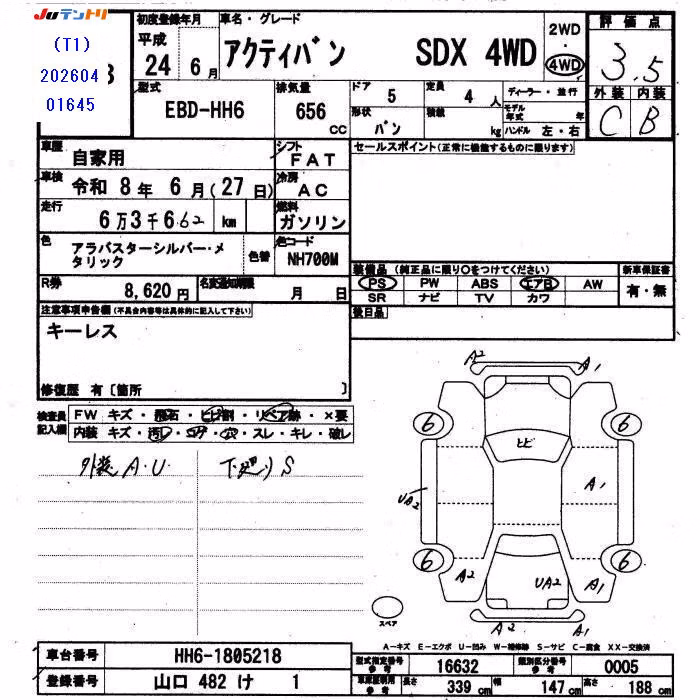 Juテントリ
(T1)
202604
01645
3
初度登録年月
平成
24 6月
車名・グレード
アクティバン SDX 4WD
2WD
・
4WD
評価点
3.5
外装 内装
C B
型式
EBD-HH6
排気量
656
cc
ドア
5
定員
4人
ディーラー・並行
モデル年式 年
形状
バン
積載
kg
ハンドル 左・右
車歴
自家用
シフト
FAT
車検
令和 8年 6月(27日)
冷房
AC
走行
6万3千662 km
燃料
ガソリン
色
アラバスターシルバー・メタリック
色替
色コード
NH700M
R券
8,620円
名変通知期限
月 日
セールスポイント(正常に機能するものに限ります)
装備品(純正品に限り○をつけてください)
新車保証書
PS PW ABS エアB AW
有・無
SR ナビ TV カワ
後日品
注意事項申告欄(不具合内容等は具体的に記入して下さい)
キーレス
修復歴 有〔箇所 〕
検査員記入欄
FW キズ・飛石・ヒビ割・リペア跡・×要
内装 キズ・汚レ・コゲ・穴・スレ・キレ・破レ
外装 A.U. 下廻り S
A2 A1
6 6
ヒビ
UA2 A1
6 6
A2 UA2 A1
A2 A1
スペア
A-キズ E-エクボ U-凹み W-補修跡 S-サビ C-腐食 XX-交換済
車台番号
HH6-1805218
型式指定番号
参考
16632
類別区分番号
参考
0005
登録番号
山口 482 け 1
車庫証明用
参考
長さ 339cm 幅 147cm 高さ 188cm